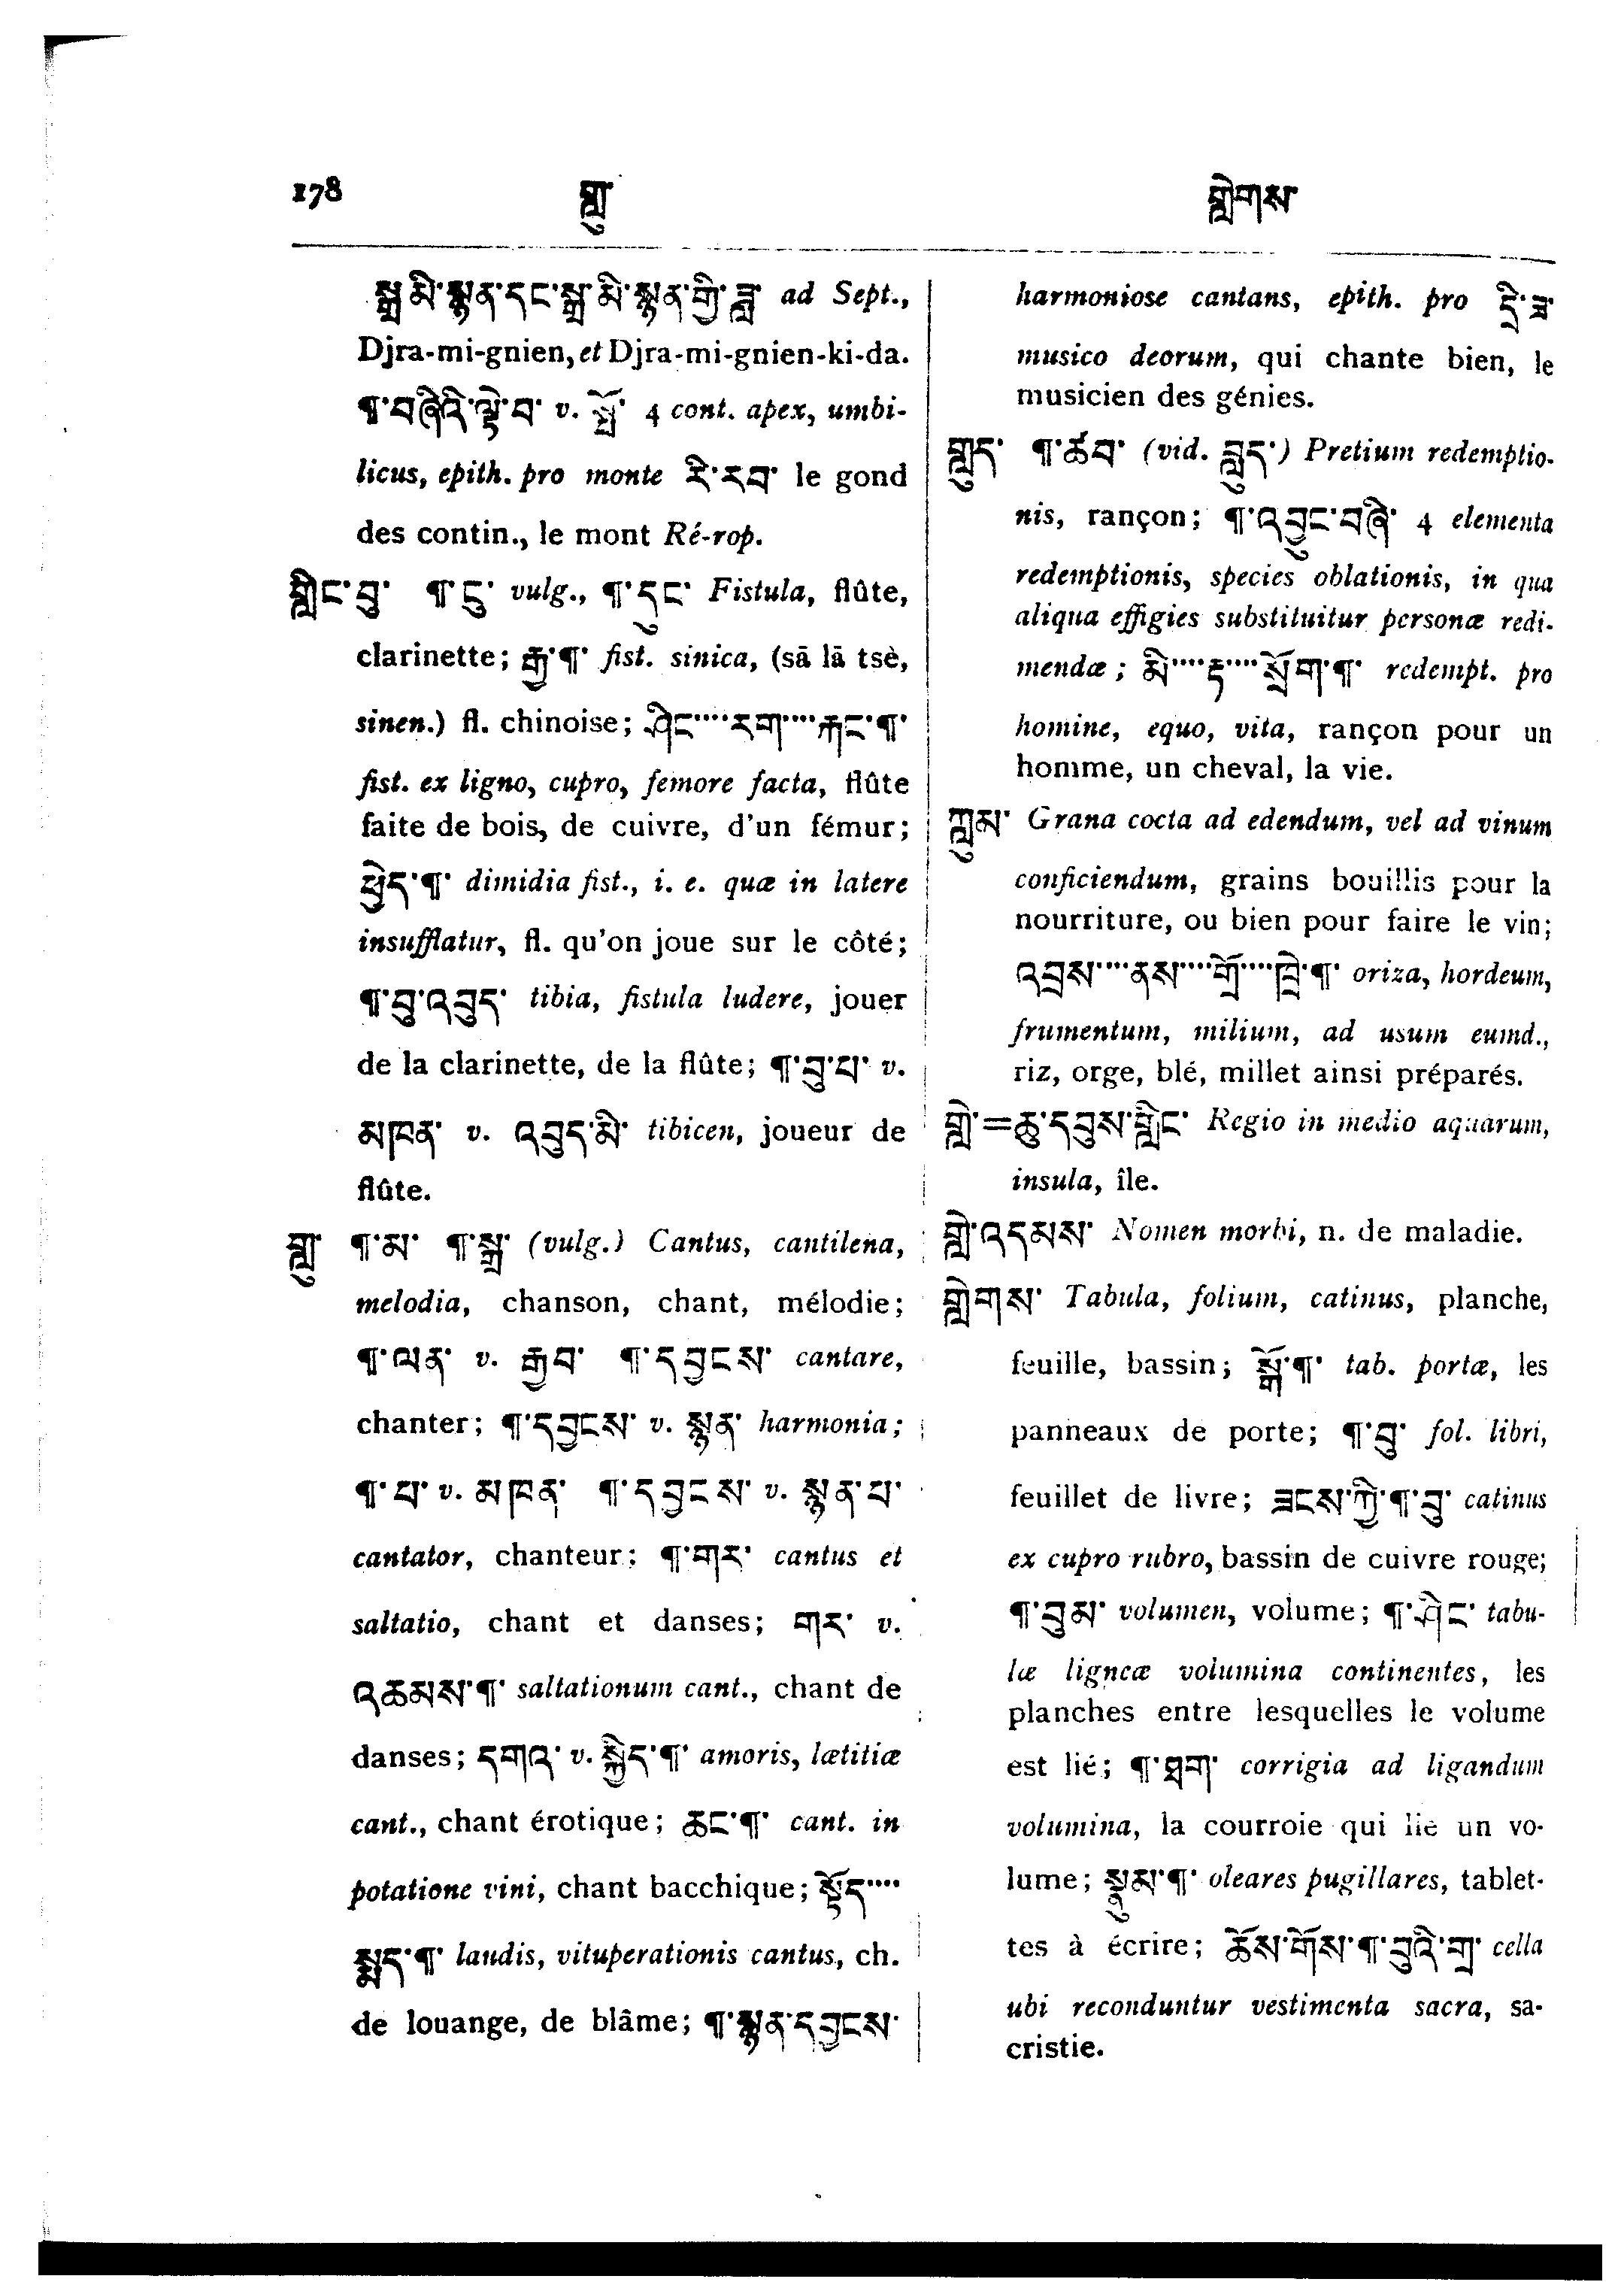 178 གླུ་ གླེགས་
སྒྲ་མི་སྙན་དང་སྒྲ་མི་སྙན་གྱི་ཟླ་ ad Sept.,
Djra-mi-gnien, et Djra-mi-gnien-ki-da.
¶་བཞིའི་ལྟེ་བ་ v. 4 cont. apex, umbi-
licus, epith. pro monte རི་རབ་ le gond
des contin., le mont Ré-rop.
གླིང་བུ་ ¶་ངུ་ vulg., ¶་དུང་ Fistula, flûte,
clarinette; རྒྱ་¶་ fist. sinica, (sā lā tsè,
sinen.) fl. chinoise; ཤིང་....རག་....རྐང་¶་
fist. ex ligno, cupro, femore facta, flûte
faite de bois, de cuivre, d'un fémur;
ཕྱེད་¶་ dimidia fist., i. e. quæ in latere
insufflatur, fl. qu'on joue sur le côté;
¶་བུ་འབུད་ tibia, fistula ludere, jouer
de la clarinette, de la flûte; ¶་བུ་པ་ v.
མཁན་ v. འབུད་མི་ tibicen, joueur de
flûte.
གླུ་ ¶་མ་ ¶་སྒྲ་ (vulg.) Cantus, cantilena,
melodia, chanson, chant, mélodie;
¶་ལན་ v. རྒྱབ་ ¶་དབྱངས་ cantare,
chanter; ¶་དབྱངས་ v. སྙན་ harmonia;
¶་པ་ v. མཁན་ ¶་དབྱངས་ v. སྙན་པ་
cantator, chanteur; ¶་གར་ cantus et
saltatio, chant et danses; གར་ v.
འཆམས་¶་ saltationum cant., chant de
danses; དགའ་ v. སྐྱིད་¶་ amoris, lætitiæ
cant., chant érotique; ཆང་¶་ cant. in
potatione vini, chant bacchique; སྟོད་....
སྨད་¶་ laudis, vituperationis cantus, ch.
de louange, de blâme; ¶་སྙན་དབྱངས་
harmoniose cantans, epith. pro དྲི་ཟ་
musico deorum, qui chante bien, le
musicien des génies.
གླུད་ ¶་ཚབ་ (vid. བླུད་) Pretium redemptio-
nis, rançon; ¶་འབྱུང་བཞི་ 4 elementa
redemptionis, species oblationis, in qua
aliqua effigies substituitur personæ redi-
mendæ; མི་....རྟ་....སྲོག་¶་ redempt. pro
homine, equo, vita, rançon pour un
homme, un cheval, la vie.
གླུམ་ Grana cocta ad edendum, vel ad vinum
conficiendum, grains bouillis pour la
nourriture, ou bien pour faire le vin;
འབྲས་....ནས་....གྲོ་....ཁྲེ་¶་ oriza, hordeum,
frumentum, milium, ad usum eumd.,
riz, orge, blé, millet ainsi préparés.
གླེ་=ཆུ་དབུས་གླིང་ Regio in medio aquarum,
insula, île.
གླེ་འདམས་ Nomen morbi, n. de maladie.
གླེགས་ Tabula, folium, catinus, planche,
feuille, bassin; སྒོ་¶་ tab. portæ, les
panneaux de porte; ¶་བུ་ fol. libri,
feuillet de livre; ཟངས་ཀྱི་¶་བུ་ catinus
ex cupro rubro, bassin de cuivre rouge;
¶་བུམ་ volumen, volume; ¶་ཤིང་ tabu-
læ ligneæ volumina continentes, les
planches entre lesquelles le volume
est lié; ¶་ཐག་ corrigia ad ligandum
volumina, la courroie qui lie un vo-
lume; སྣུམ་¶་ oleares pugillares, tablet-
tes à écrire; ཆོས་གོས་¶་བུའི་གྲ་ cella
ubi reconduntur vestimenta sacra, sa-
cristie.